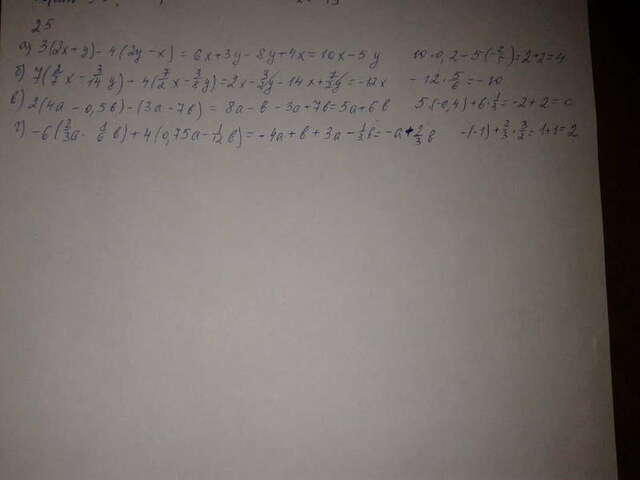 25
а) 3(2x+y) - 4(2y-x) = 6x+3y-8y+4x=10x-5y 10·0,2-5·(-2/5)=2+2=4
б) 7(2/7x - 3/14y) - 4(7/2x - 3/8y) = 2x - 3/2y - 14x + =-12x -12·5/6=-10
в) 2(4a - 0,5b) - (3a - 7b) = 8a - b - 3a + 7b = 5a + 6b 5·(-0,4)+6·1/3=-2+2=0
г) -6(2/3a - 1/6b) + 4(0,75a - 1/12b) = -4a + b + 3a - 1/3b = -a + 2/3b -(-1)+2/3·3/2=1+1=2